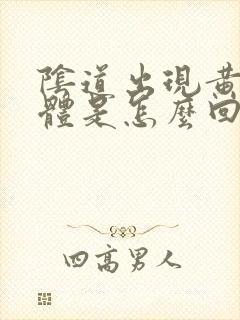 陰道出現黃
體是怎麼回
四高男人